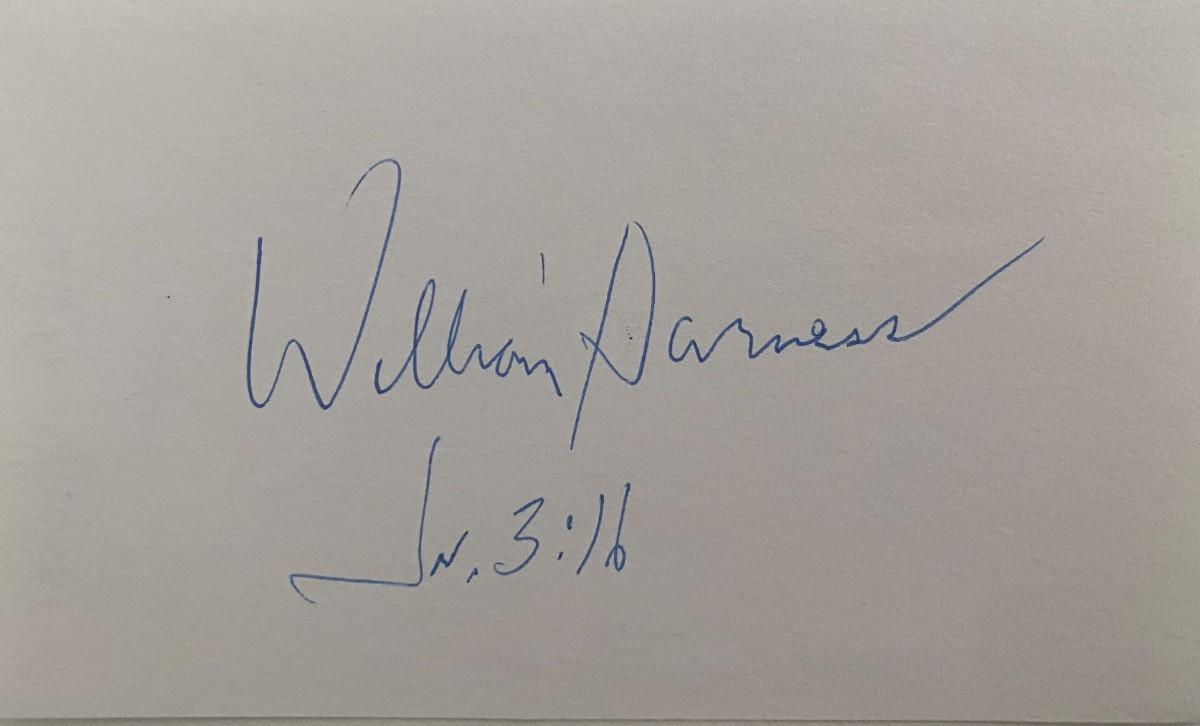 William Darness
Jn. 3:16